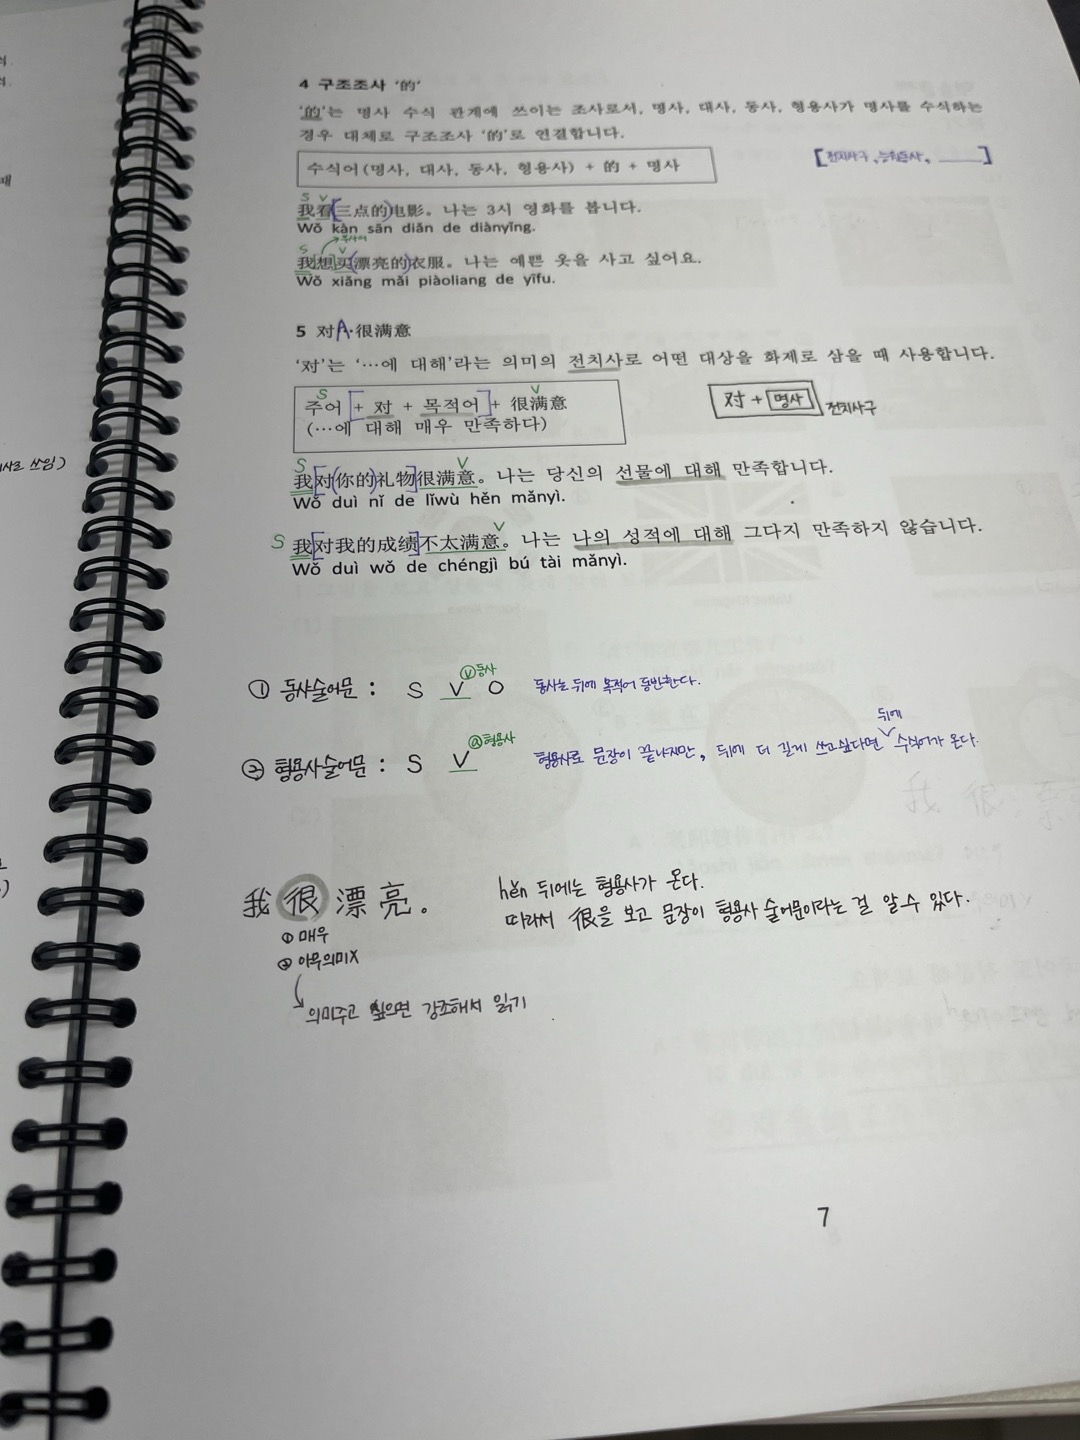 4 구조조사 '的'
'的'는 명사 수식 관계에 쓰이는 조사로서, 명사, 대사, 동사, 형용사가 명사를 수식하는
경우 대체로 구조조사 '的'로 연결합니다.
수식어(명사, 대사, 동사, 형용사) + 的 + 명사
[전치사구, 능원동사, ____]
S V
我看[(三点的)电影。나는 3시 영화를 봅니다.
Wǒ kàn sān diǎn de diànyǐng.
S →부사어 V
我[想]买(漂亮的)衣服。나는 예쁜 옷을 사고 싶어요.
Wǒ xiǎng mǎi piàoliang de yīfu.
5 对A·很满意
'对'는 '…에 대해'라는 의미의 전치사로 어떤 대상을 화제로 삼을 때 사용합니다.
S V
주어 [+ 对 + 목적어]+ 很满意
(…에 대해 매우 만족하다)
对 + 명사 전치사구
사로 쓰임)
S V
我[对(你的)礼物]很满意。나는 당신의 선물에 대해 만족합니다.
Wǒ duì nǐ de lǐwù hěn mǎnyì.
V
S 我[对我的成绩]不太满意。나는 나의 성적에 대해 그다지 만족하지 않습니다.
Wǒ duì wǒ de chéngjì bú tài mǎnyì.
ⓥ동사
① 동사술어문 : S V O 동사는 뒤에 목적어 동반한다.
ⓐ형용사 뒤에
② 형용사술어문 : S V 형용사로 문장이 끝나지만, 뒤에 더 길게 쓰고싶다면 ∨ 수식어가 온다.
我 很 漂 亮。 hěn 뒤에는 형용사가 온다.
① 매우 따라서 很을 보고 문장이 형용사 술어문이라는 걸 알 수 있다.
② 아무의미X
의미주고 싶으면 강조해서 읽기
7